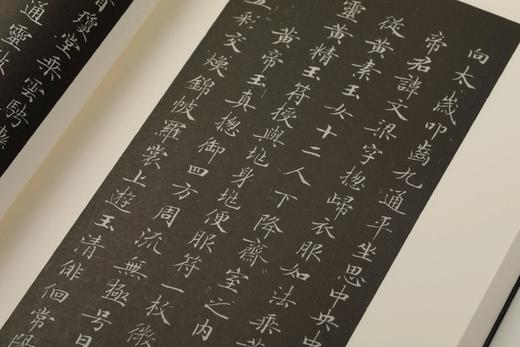 向太歲叩齒九通平坐思中央
帝君諱文梁字摠歸衣服如法乘
從黃素玉女十二人下降齋室之內
靈黃精玉符授與兆身兆便服符一枚微
黃帝玉真摠御四方周流無極號曰
五彩交煥錦帔羅裳上遊玉清俳佪常
瓊堂乘雲騁
通靈